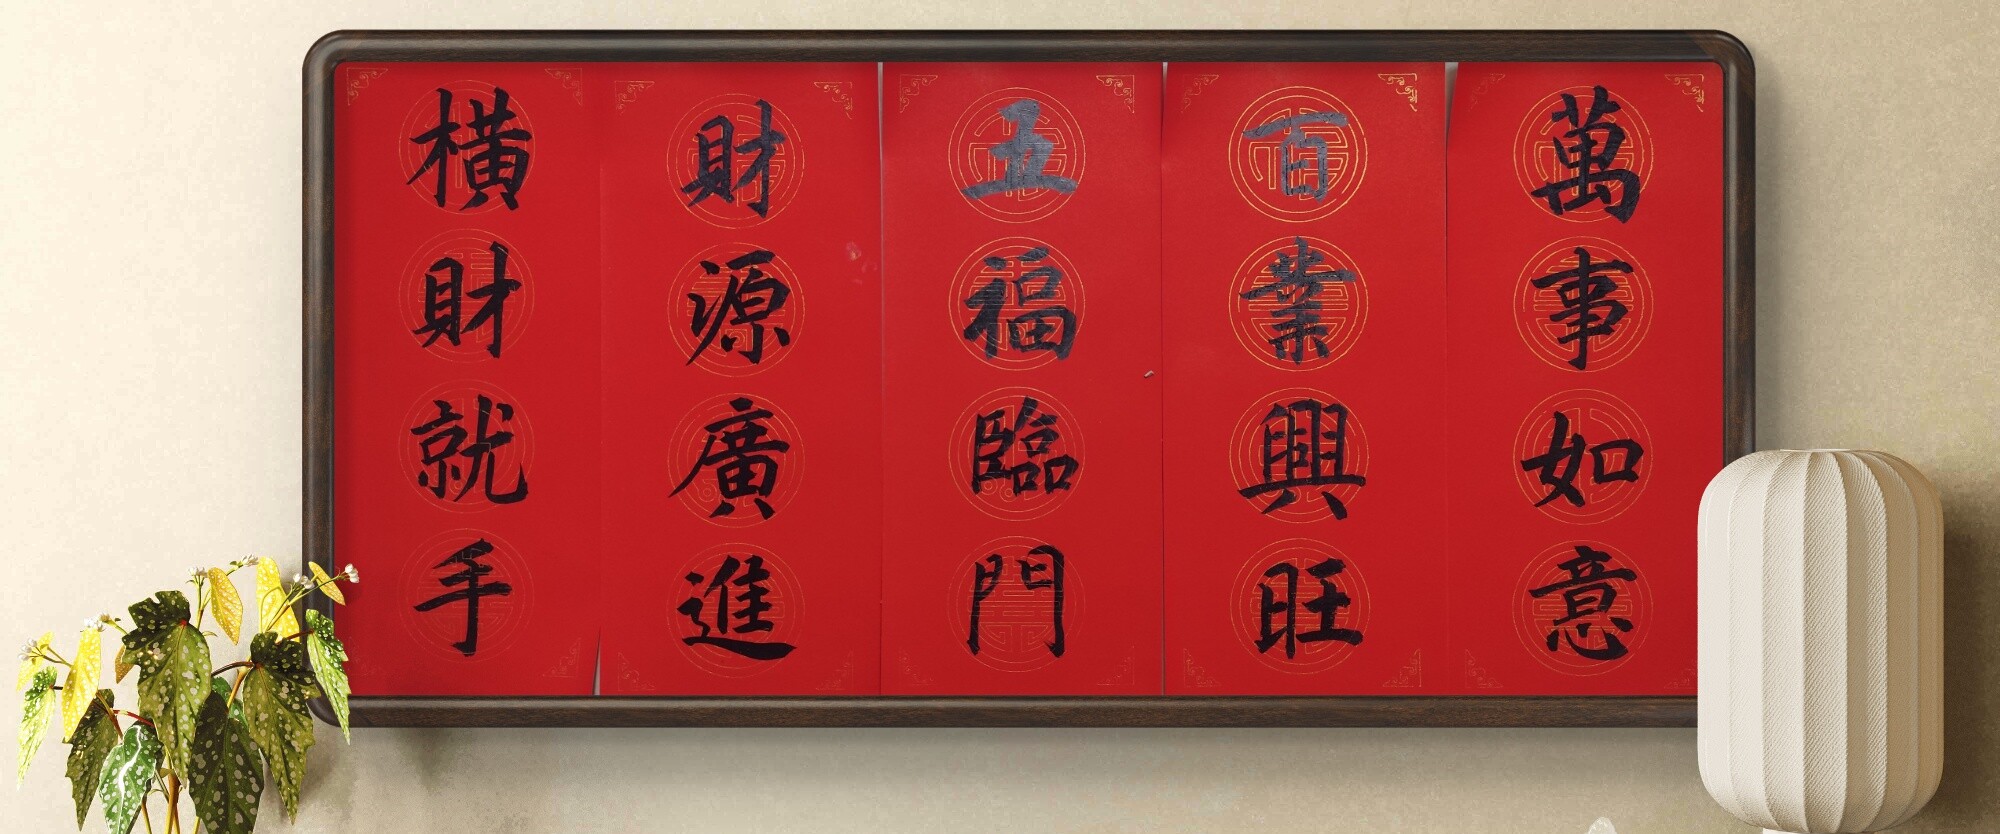 萬事如意
百業興旺
五福臨門
財源廣進
橫財就手